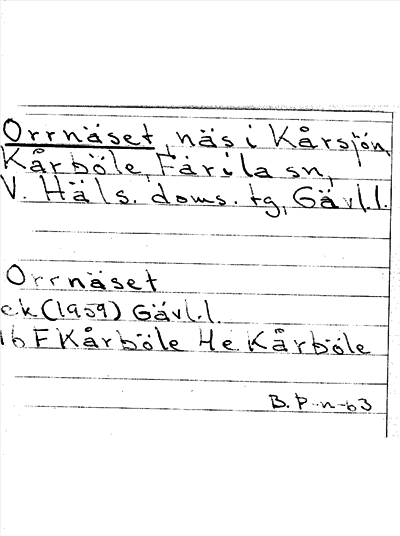 Orrnäset, näs i Kårsjön,
Kårböle, Färila sn,
V. Häls. doms. tg, Gävl.l.
Orrnäset
ek (1959) Gävl.l.
16 F Kårböle He. Kårböle
B. P-n-63